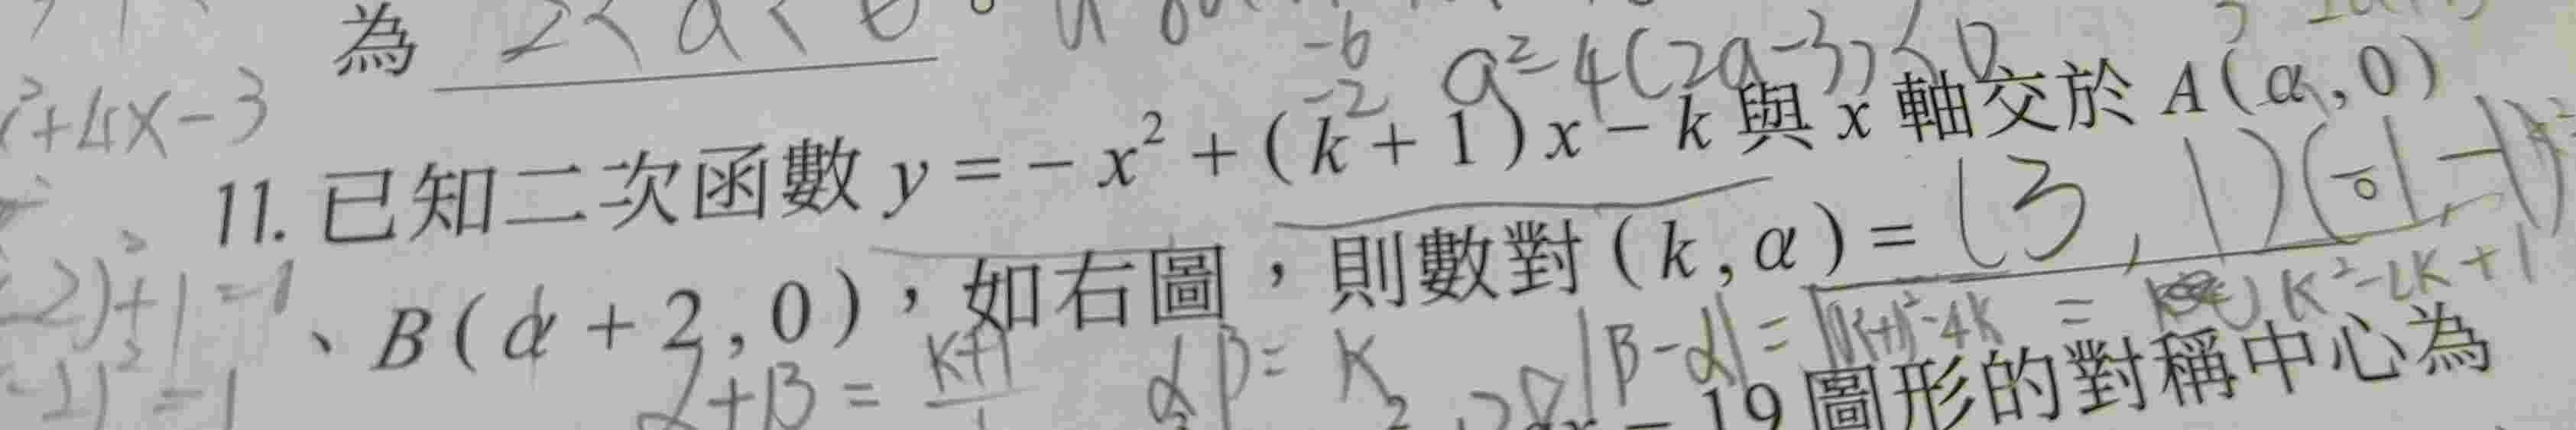 為 2<a<6。
-6
-2 a²-4(2a-3)<0
²+4x-3
11. 已知二次函數 y = - x² + ( k + 1 ) x - k 與 x 軸交於 A ( α , 0 )
、B ( α + 2 , 0 ) ,如右圖,則數對 ( k , α ) = (3, 1)(-1,-1)。
-2)²+1=1
-2)²=1
α+β= K+1 αβ= K |β-α|= √(K+1)²-4K = K²-2K+1
- 19 圖形的對稱中心為